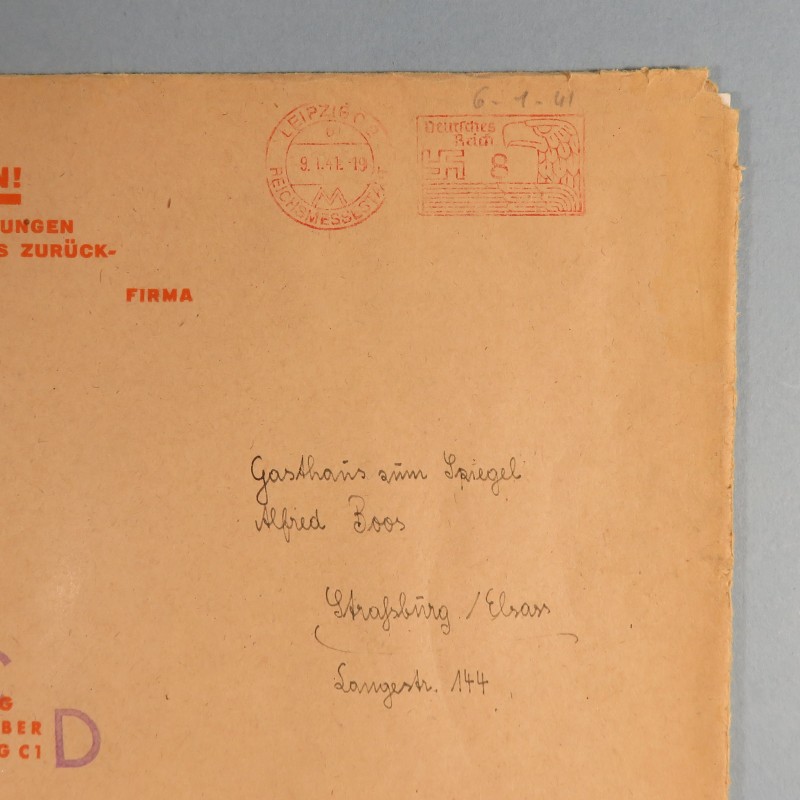 6-1-41
LEIPZIG C2
9.1.41.-19
REICHSMESSESTADT
Deutsches
Reich
8
N!
UNGEN
S ZURÜCK-
FIRMA
Gasthaus zum Spiegel
Alfred Boos
Straßburg / Elsass
Langestr. 144
G
BER
G C1
D